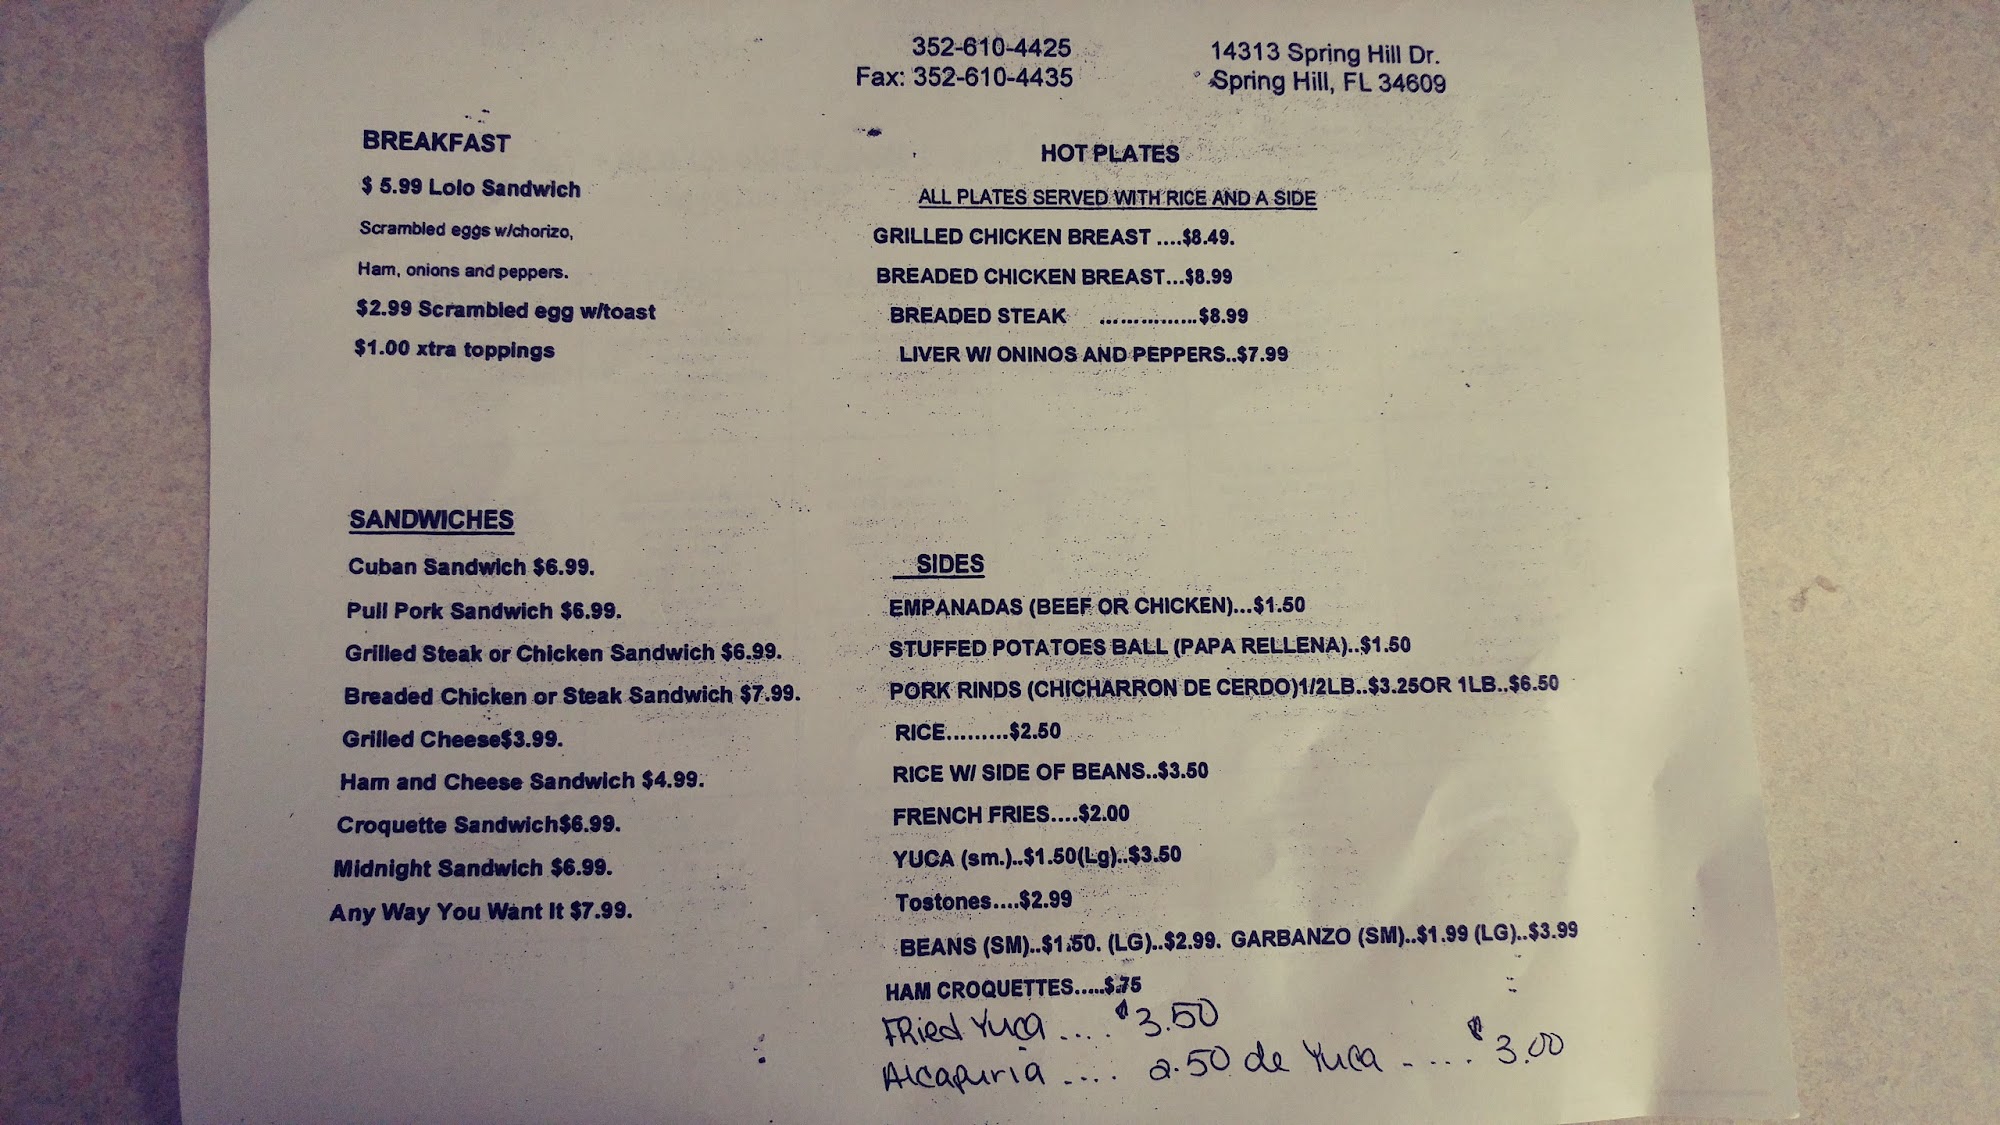 352-610-4425
Fax: 352-610-4435
14313 Spring Hill Dr.
Spring Hill, FL 34609
BREAKFAST
$ 5.99 Lolo Sandwich
Scrambled eggs w/chorizo,
Ham, onions and peppers.
$2.99 Scrambled egg w/toast
$1.00 xtra toppings
HOT PLATES
ALL PLATES SERVED WITH RICE AND A SIDE
GRILLED CHICKEN BREAST ....$8.49.
BREADED CHICKEN BREAST...$8.99
BREADED STEAK ...............$8.99
LIVER W/ ONINOS AND PEPPERS..$7.99
SANDWICHES
Cuban Sandwich $6.99.
Pull Pork Sandwich $6.99.
Grilled Steak or Chicken Sandwich $6.99.
Breaded Chicken or Steak Sandwich $7.99.
Grilled Cheese$3.99.
Ham and Cheese Sandwich $4.99.
Croquette Sandwich$6.99.
Midnight Sandwich $6.99.
Any Way You Want It $7.99.
SIDES
EMPANADAS (BEEF OR CHICKEN)...$1.50
STUFFED POTATOES BALL (PAPA RELLENA)..$1.50
PORK RINDS (CHICHARRON DE CERDO)1/2LB..$3.25OR 1LB..$6.50
RICE.........$2.50
RICE W/ SIDE OF BEANS..$3.50
FRENCH FRIES....$2.00
YUCA (sm.)..$1.50(Lg)..$3.50
Tostones....$2.99
BEANS (SM)..$1.50. (LG)..$2.99. GARBANZO (SM)..$1.99 (LG)..$3.99
HAM CROQUETTES.....$.75
FRied Yuca .... $3.50
Alcapuria .... 2.50 de Yuca ..... $3.00